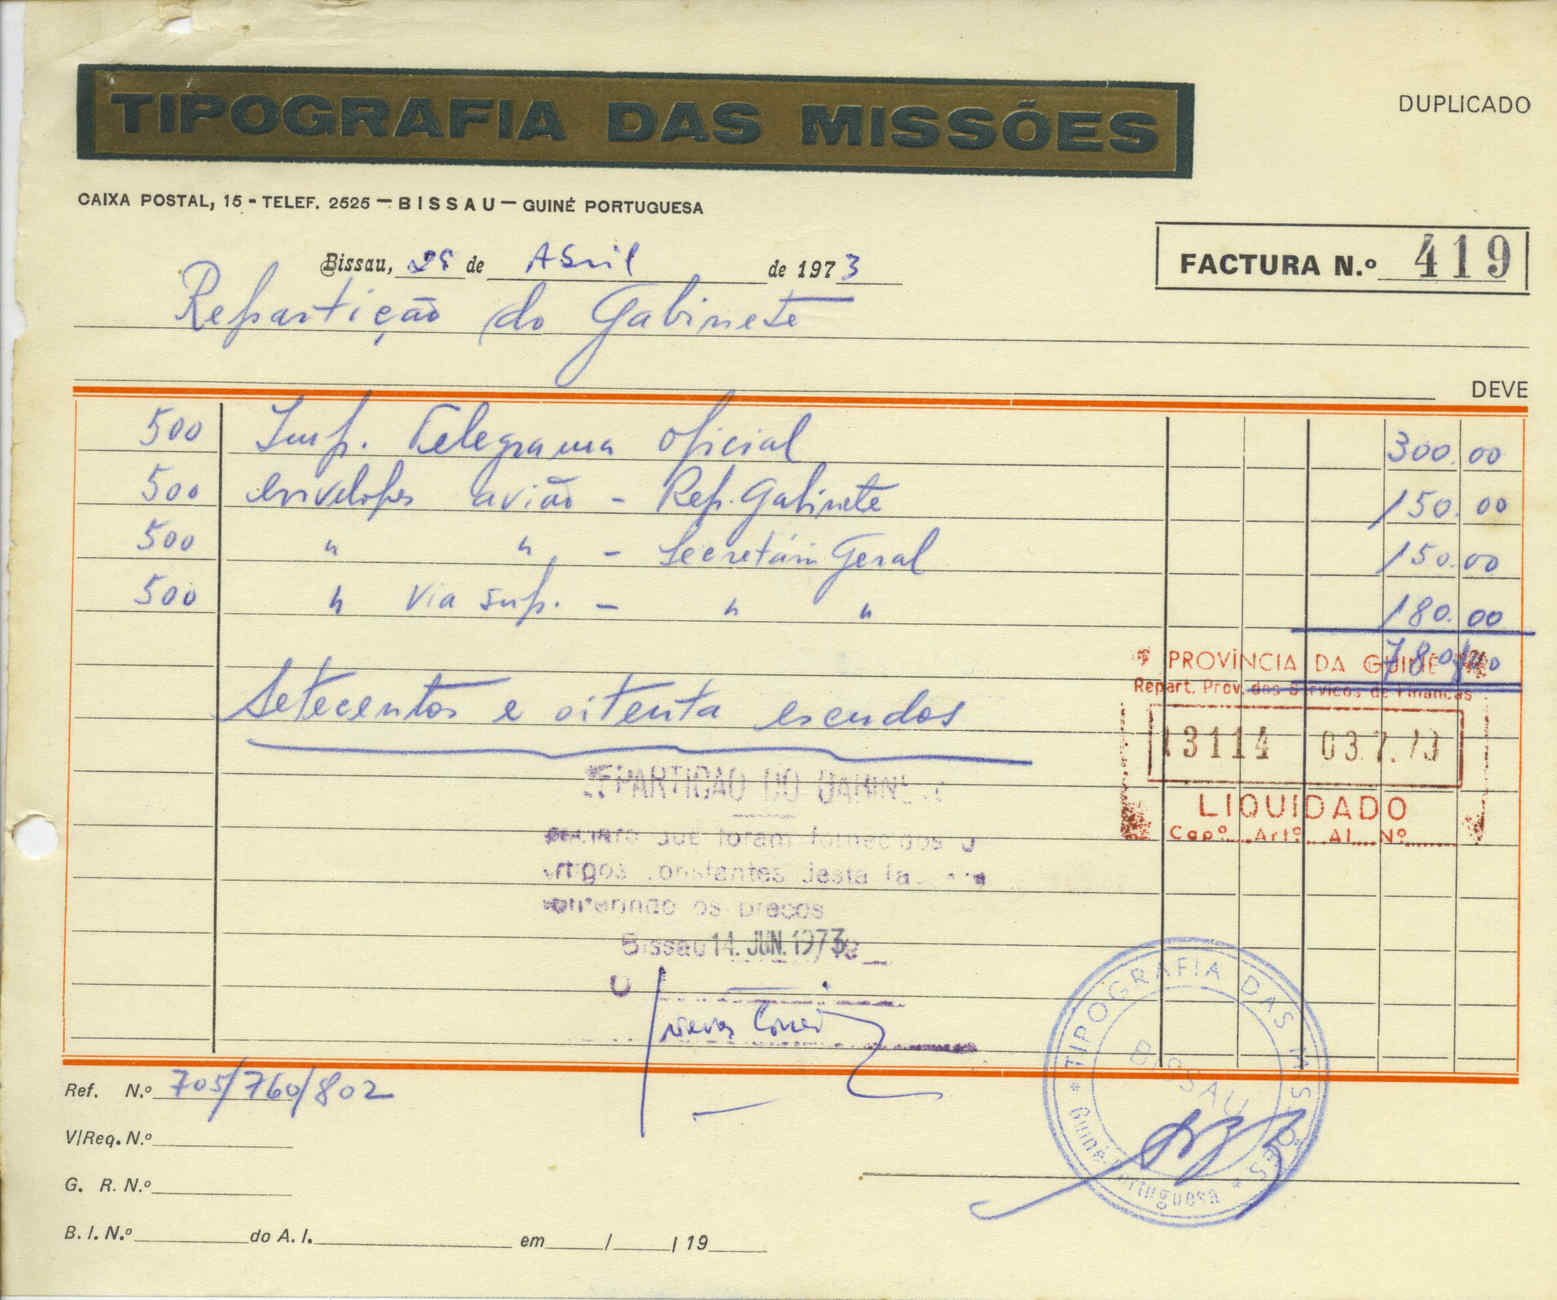 TIPOGRAFIA DAS MISSÕES
DUPLICADO
CAIXA POSTAL, 15 - TELEF. 2525 — BISSAU — GUINÉ PORTUGUESA
Bissau, 28 de Abril de 1973
FACTURA N.º 419
Repartição do Gabinete
DEVE
500 Imp. Telegrama oficial 300.00
500 envelopes avião - Rep. Gabinete 150.00
500 " " - Secretária Geral 150.00
500 " Via sup. - " " 180.00
780,00
PROVÍNCIA DA GUINÉ
Repart. Prov. dos Serviços de Finanças
Setecentos e oitenta escudos
13114 03.7.73
LIQUIDADO
Capº Artº Al. Nº
REPARTIÇÃO DO GABINETE
que foram fornecidos o
artigos constantes desta
os preços
Bissau 14. JUN. 1973
O
TIPOGRAFIA DAS MISSÕES
BISSAU
* Guiné Portuguesa *
Ref. N.º 705/760/802
V/Req. N.º
G. R. N.º
B. I. N.º do A. I. em / / 19